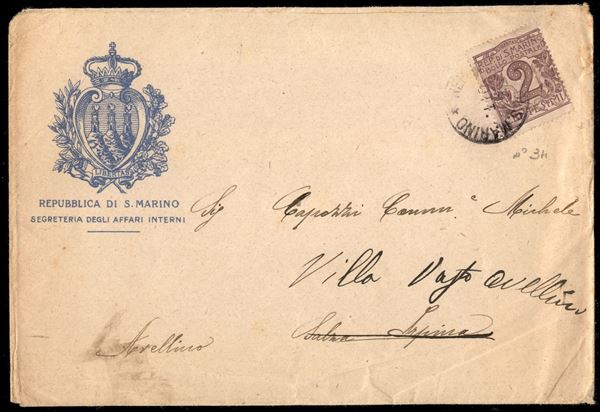 REP. DI S. MARINO
2
S. MARINO
n° 34
LIBERTAS
REPUBBLICA DI S. MARINO
SEGRETERIA DEGLI AFFARI INTERNI
Sig Capozzi Comm. Michele
Villa Vasto Avellino
Salza Irpina
Avellino